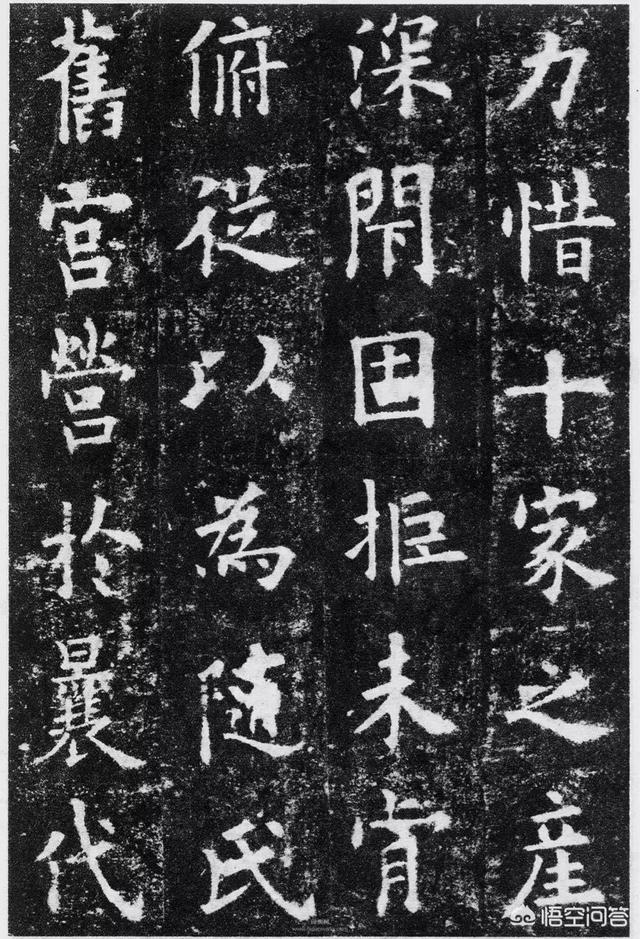 力惜十家之產
深閇固拒未肯
俯從以為隨氏
舊宮營於曩代
悟空问答